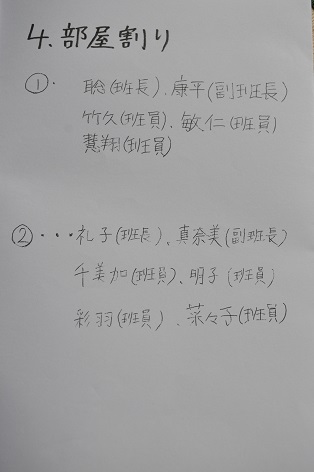 4.部屋割り
①・ 聡(班長)、康平(副班長)
竹久(班員)、敏仁(班員)
慧翔(班員)
②・・・礼子(班長)、真奈美(副班長)
千美加(班員)、明子(班員)
彩羽(班員)、菜々子(班員)